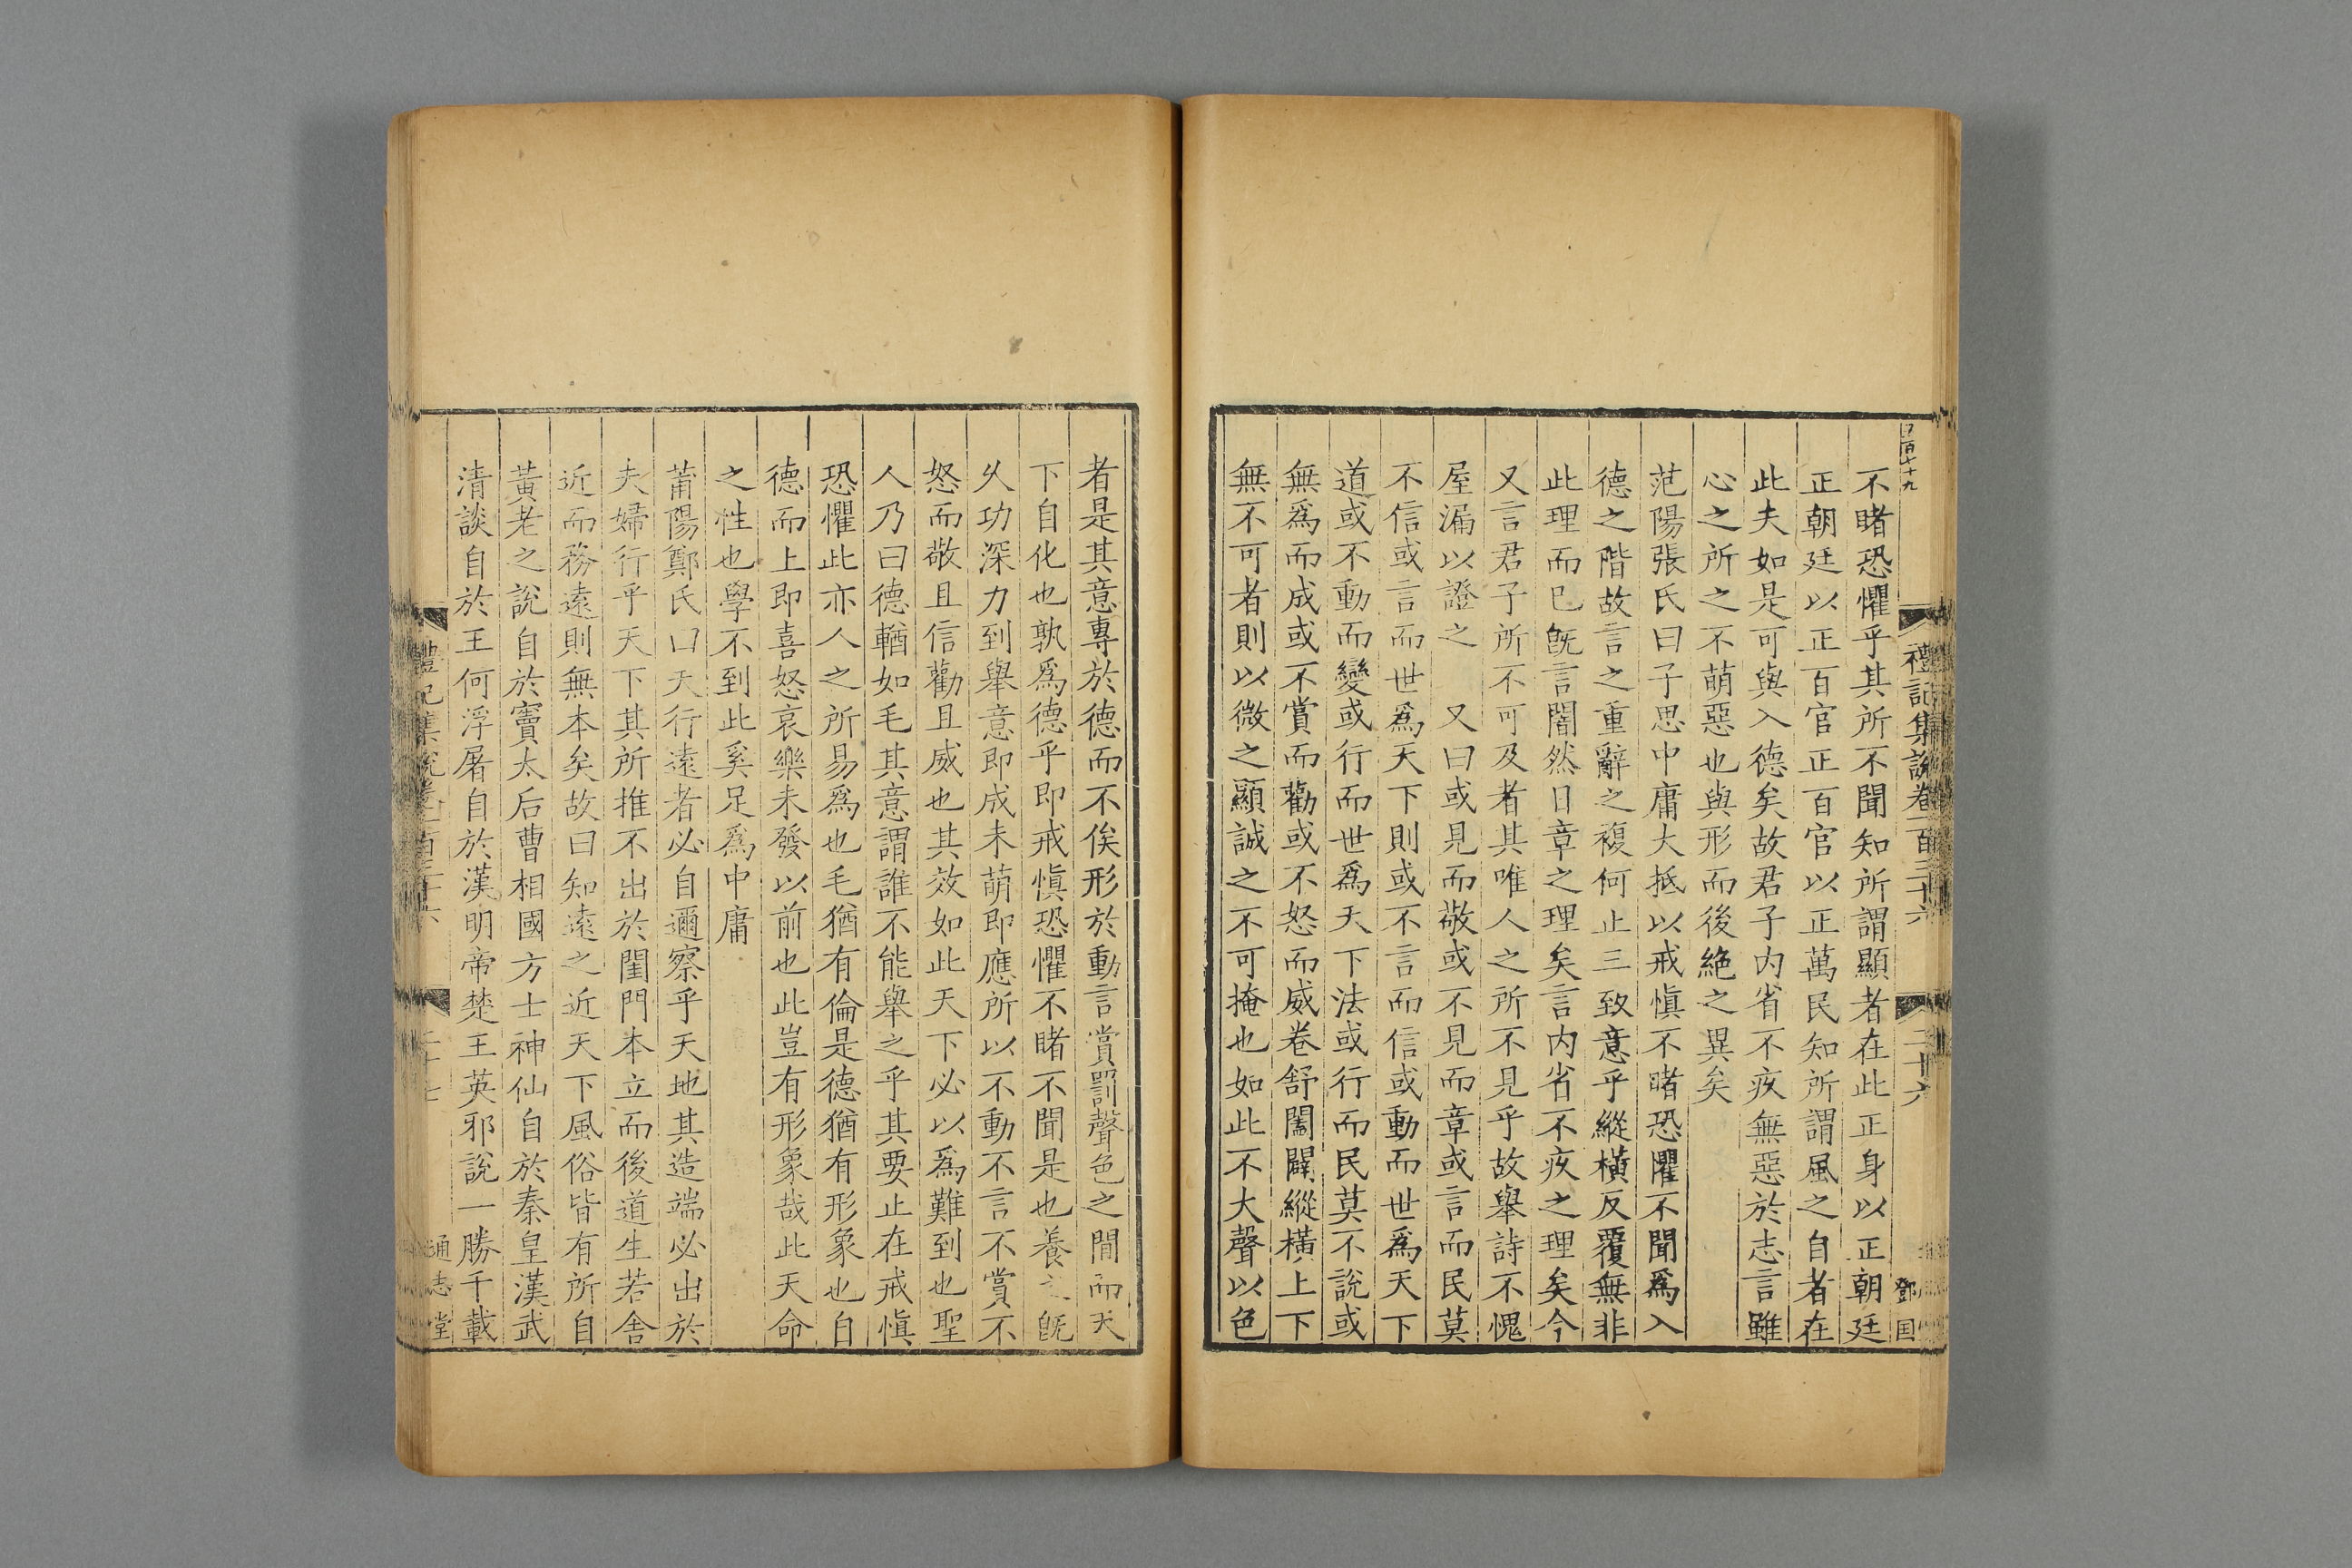 禮記集說卷一百三十六
二十六
鄧国
不睹恐懼乎其所不聞知所謂顯者在此正身以正朝廷
正朝廷以正百官正百官以正萬民知所謂風之自者在
此夫如是可與入德矣故君子内省不疚無惡於志言雖
心之所之不萌惡也與形而後絶之異矣
范陽張氏曰子思中庸大抵以戒愼不睹恐懼不聞爲入
德之階故言之重辭之複何止三致意乎縱橫反覆無非
此理而已旣言闇然日章之理矣言内省不疚之理矣今
又言君子所不可及者其唯人之所不見乎故舉詩不愧
屋漏以證之　又曰或見而敬或不見而章或言而民莫
不信或言而世爲天下則或不言而信或動而世爲天下
道或不動而變或行而世爲天下法或行而民莫不說或
無爲而成或不賞而勸或不怒而威卷舒闔闢縱橫上下
無不可者則以微之顯誠之不可掩也如此不大聲以色
者是其意專於德而不俟形於動言賞罰聲色之間而天
下自化也孰爲德乎即戒愼恐懼不睹不聞是也養之旣
乆功深力到舉意即成未萌即應所以不動不言不賞不
怒而敬且信勸且威也其效如此天下必以爲難到也聖
人乃曰德輶如毛其意謂誰不能舉之乎其要止在戒愼
恐懼此亦人之所易爲也毛猶有倫是德猶有形象也自
德而上即喜怒哀樂未發以前也此豈有形象哉此天命
之性也學不到此奚足爲中庸
莆陽鄭氏曰天行遠者必自邇察乎天地其造端必出於
夫婦行乎天下其所推不出於閨門本立而後道生若舍
近而務遠則無本矣故曰知遠之近天下風俗皆有所自
黃老之說自於竇太后曹相國方士神仙自於秦皇漢武
清談自於王何浮屠自於漢明帝楚王英邪說一勝千載
禮記集說卷一百三十六
二十七
通志堂